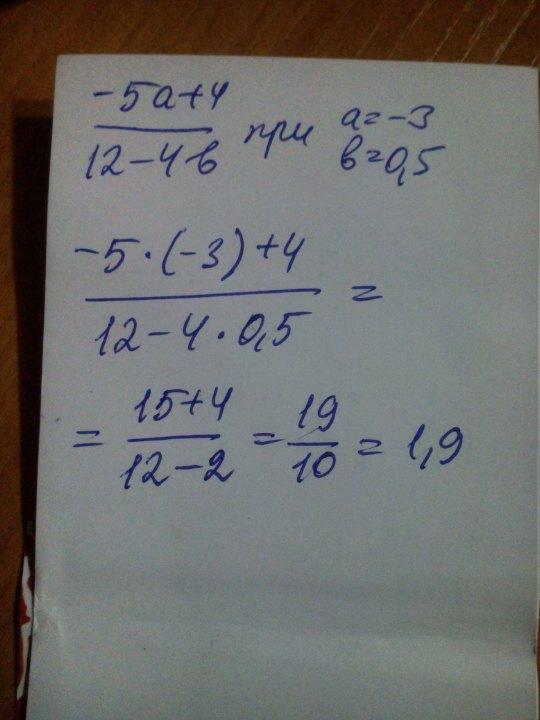 -5a+4
12-4в при a=-3
в=0,5
-5·(-3)+4
12-4·0,5 =
= 15+4 / 12-2 = 19/10 = 1,9